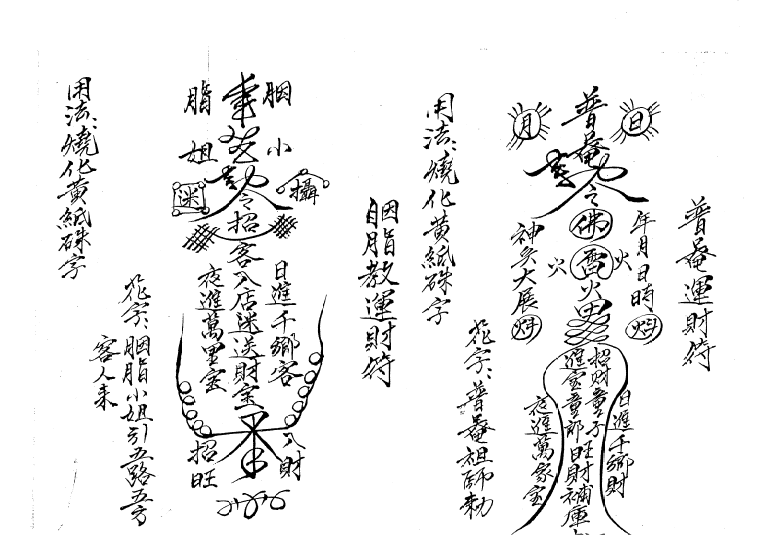 普菴運財符
年月日時
日
普菴
月
勅令
佛
火
火
神炎大展
日進千鄉財
招財童子
進宝童郎旺財補庫
夜進萬家宝
用法:燒化黃紙硃字
花字:普菴祖師勅
胭脂教運財符
胭脂
小姐
攝
迷
勅令招客入店迷送財宝
日進千鄉客
夜進萬里宝
入財
招旺
用法:燒化黃紙硃字
花字:胭脂小姐引五路五方
客人来